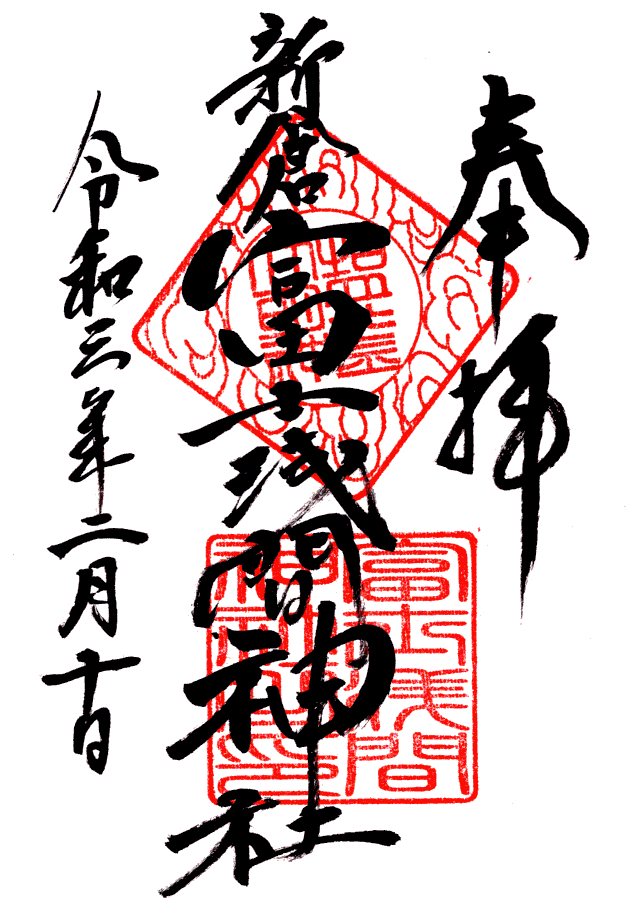 奉拝
新倉富士浅間神社
令和三年二月十日
富士浅間
神社之印